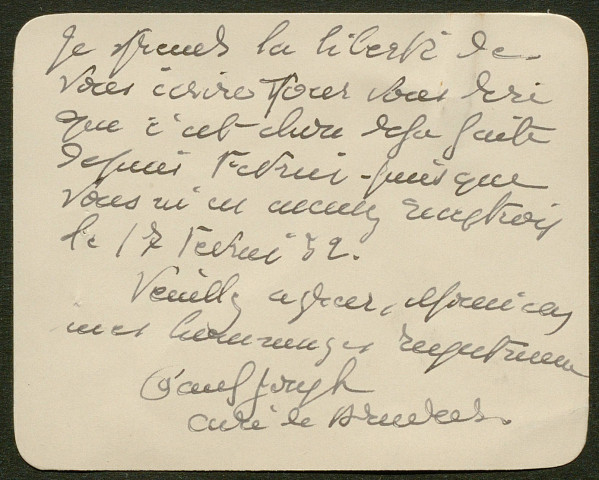 Je prends la liberté de
vous écrire pour vous dire
que c'est chose déjà faite
depuis Février - puisque
vous m'en
le 17 Février 32.
Veuillez agréer, Monsieur,
mes hommages respectueux
curé de